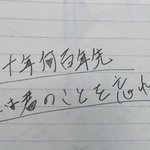 十年何百年先
は君のことを忘れ